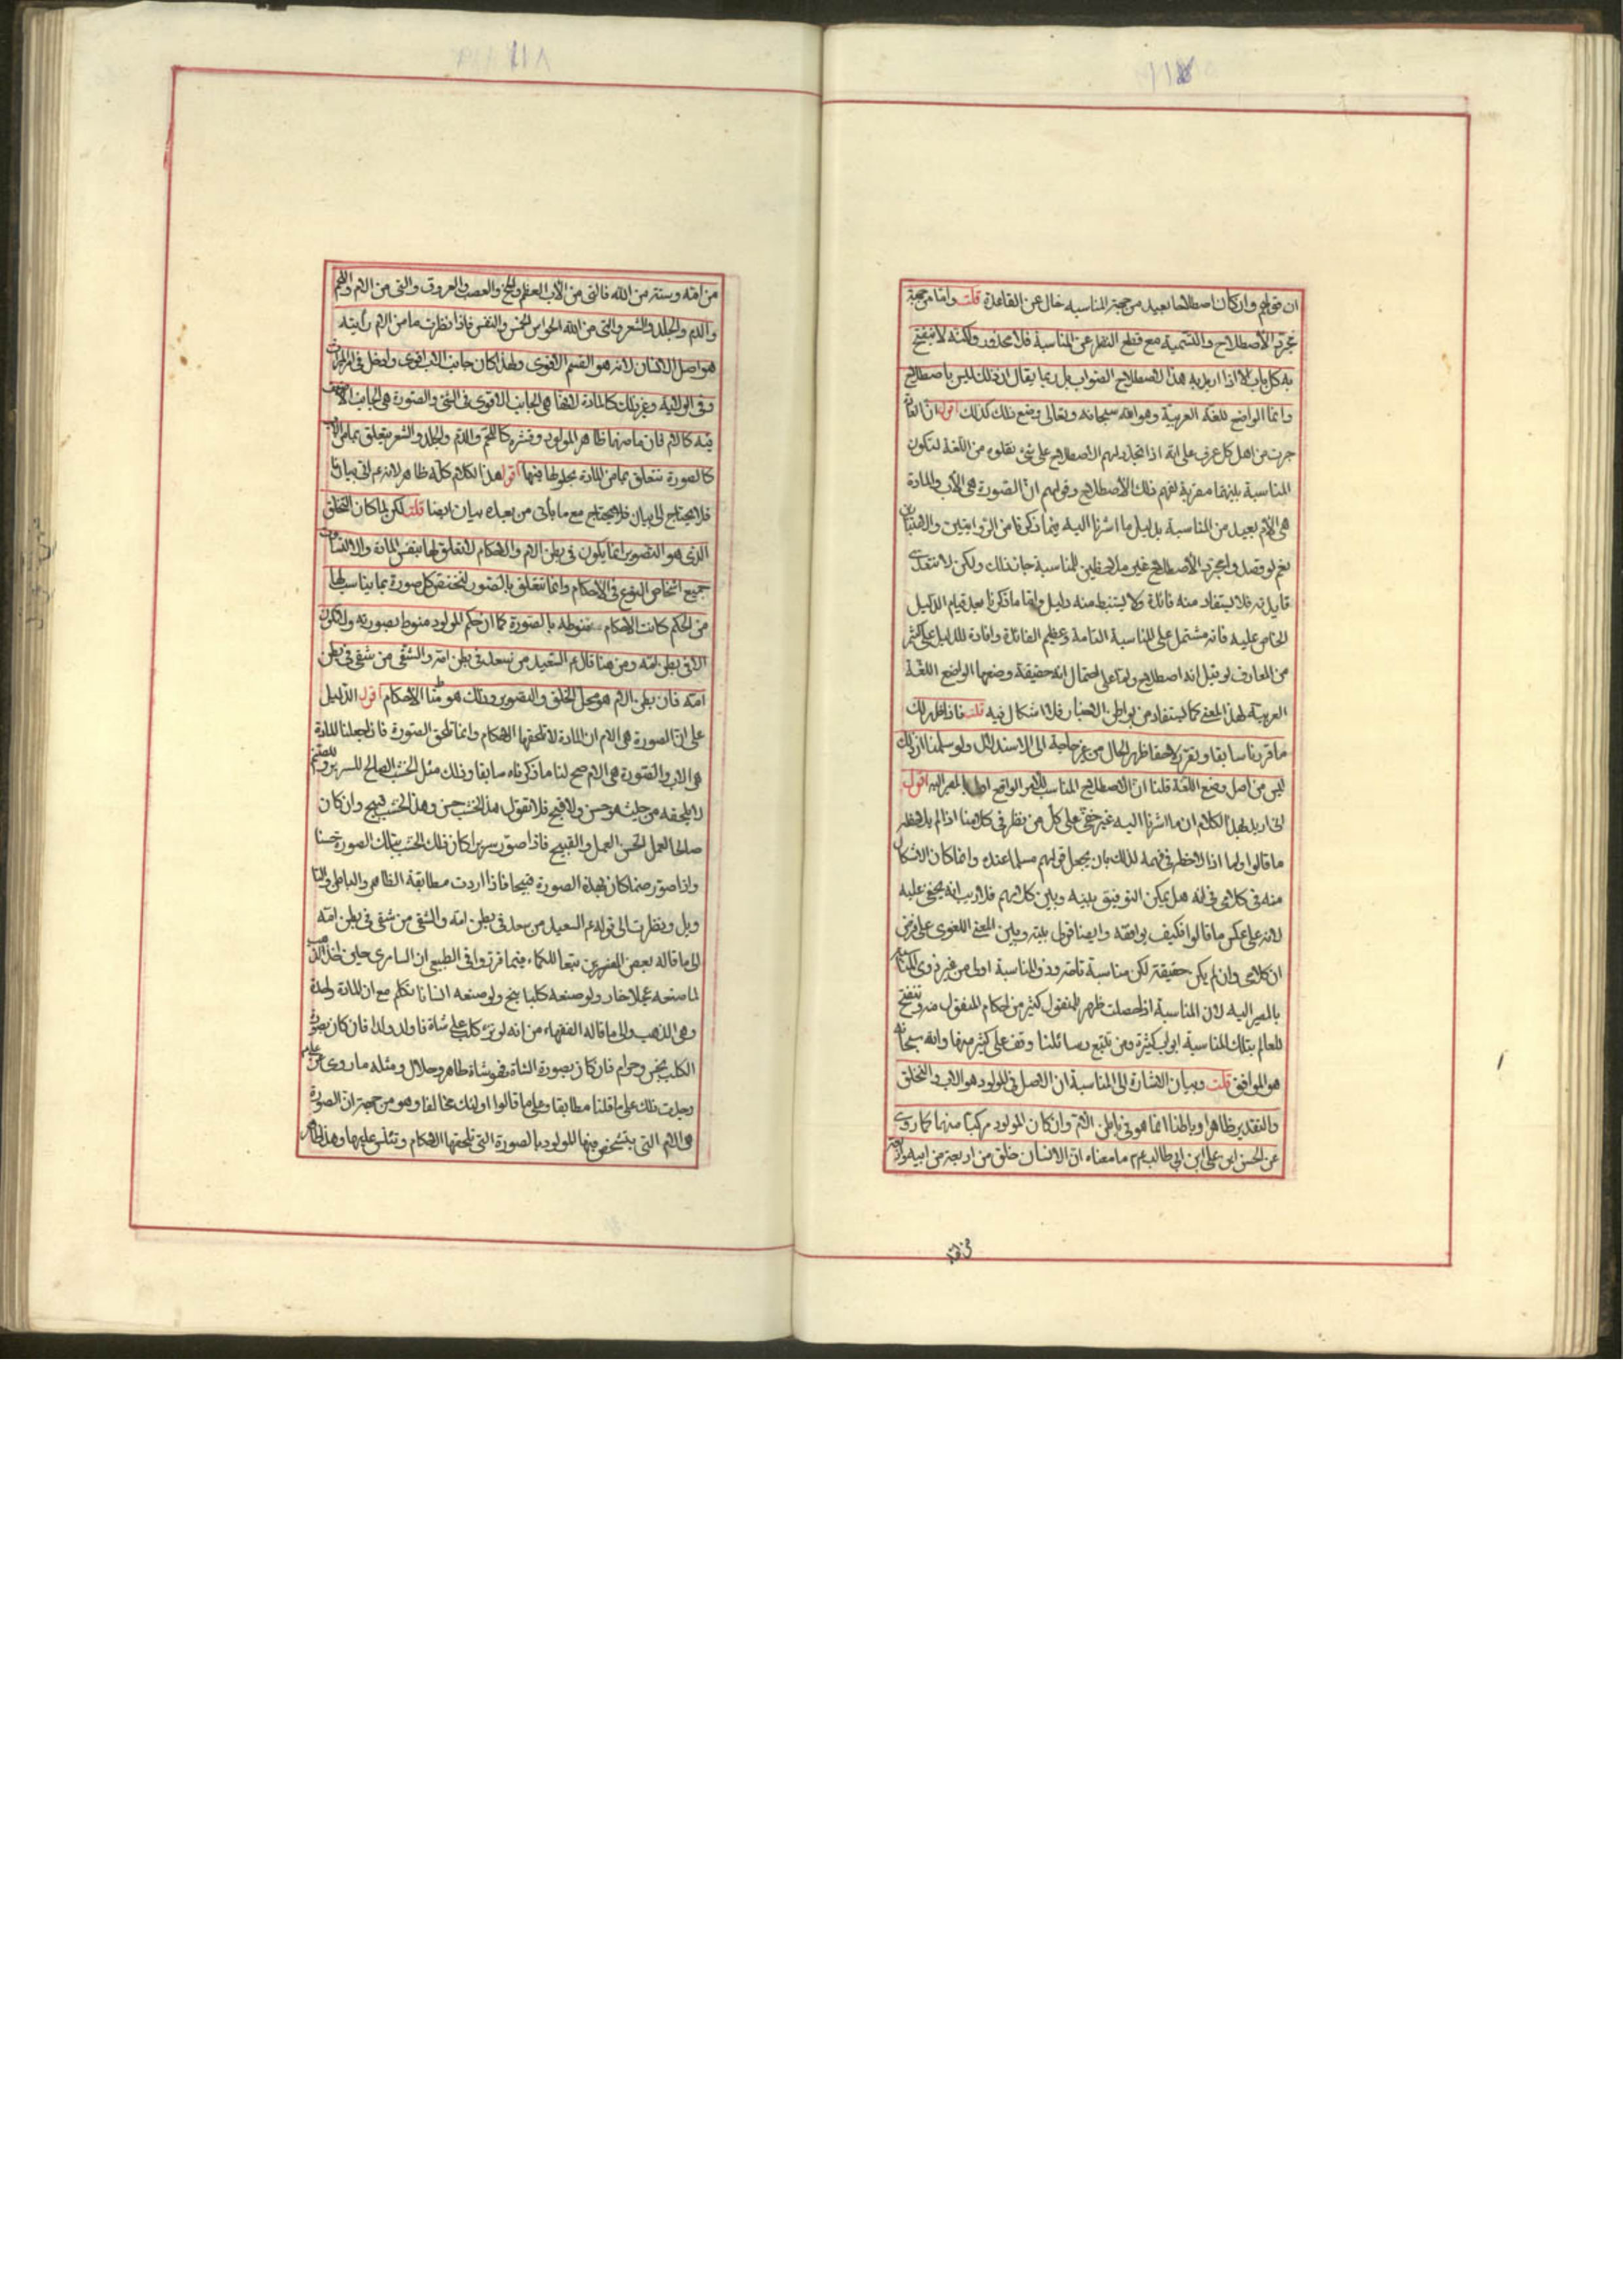 ان قولهم وان كان اصطلاحا بعيد من جهة المناسبة خال عن القاعدة قلت واما من جهة
مجرد الأصطلاح والتسمية مع قطع النظر عن المناسبة فلا محذور ولكنه لا ينفتح
به كل باب الا اذا اريد به هذا الاصطلاح الصواب بل ربما يقال ان ذلك ليس باصطلاح
وانما الواضع للغة العربية وهو الله سبحانه وتعالى وضع ذلك كذلك اقول ان العادة
جرت من اهل كل عرف على انه اذا تجدد لهم الاصطلاح على شئ نقلوه من اللغة لتكون
المناسبة بينهما مقربة لفهم ذلك الأصطلاح وقولهم ان الصورة هى الأب والمادة
هى الأم بعيد من المناسبة بدليل ما اشرنا اليه فيما ذكرنا من الروايتين والاعتبار
نعم لو قصد والمجرد الأصطلاح غير ملاحظين للمناسبة جاز ذلك ولكن لا تتعدى
فايدته فلا يستفاد منه فائدة ولا يستنبط منه دليل واما ما ذكرنا بعد قيام الدليل
الخاص عليه فانه مشتمل على المناسبة التامة وعظيم الفائدة وافادة للدليل على كثير
من المعارف لو قيل انه اصطلاح واما على احتمال انه حقيقة وضعها الواضع اللغة
العربية لهذا المعنى كما يستفاد من بواطن الاخبار فلا اشكال فيه قلت فاذا ظهر لك
ما قررنا سابقا ونقرر لاحقا ظهر الحال من غير حاجة الى الاستدلال ولو سلمنا ان ذلك
ليس من اصل وضع اللغة قلنا ان الاصطلاح المناسب للامر الواقع اولى بالمصير اليه اقول
انى اريد بهذا الكلام ان ما اشرنا اليه غير خفى على كل من نظر فى كلامنا اذا لم يلاحظ
ما قالوا واما اذا لاحظ فى فهمه لذلك بان يجعل قولهم مسلما عنده وانما كان الاشكال
منه فى كلامى فى انه هل يمكن التوفيق بينه وبين كلامهم فلا ريب انه يخفى عليه
لانه على عكس ما قالوا فكيف يوافقه وايضا قولى بينه وبين المعنى اللغوى على فرض
ان كلامى وان لم يكن حقيقة لكن مناسبة تامة وذو المناسبة اولى من غير ذوى المناسبة
بالمصير اليه لان المناسبة اذا حصلت ظهر للمنقول كثير من احكام المنقول منه وتنفتح
للعالم بتلك المناسبة ابواب كثيرة ومن تتبع رسائلنا وقف على كثير منها والله سبحانه
هو الموافق قلت وبيان الاشارة الى المناسبة ان الاصل فى المولود هو الاب والتخلق
والتقدير ظاهرا وباطنا انما هو فى باطن الام وان كان المولود مركبا منهما كما روى
عن الحسن ابن على ابن ابى طالب عم ما معناه ان الانسان خلق من اربعة من ابيه واربعة
من امه
من امه وستة من الله فالتى من الأب العظم والمخ والعصب والعروق والتى من الام واللحم
والدم والجلد والشعر والتى من الله الحواس الخمس والنفس فاذا نظرت ما من الاب رأيته
هو اصل الانسان لانه هو القسم الاقوى ولهذا كان جانب الاب اقوى وادخل فى الميراث
وفى الولاية وغير ذلك كالمادة لانها هى الجانب الاقوى فى الشئ والصورة هى الجانب الاضعف
فيه كالام فان ما منها ظاهر المولود وقشره كاللحم والدم والجلد والشعر يتعلق بما من الاب
كالصورة تتعلق بما من المادة بحلولها فيها اقول هذا الكلام كله ظاهر لانه عم الى بيان
فلا يحتاج الى بيان فلا يحتاج مع ما يأتى من بعده بيان ايضا قلت لكن لما كان التخلق
الذى هو التصوير انما يكون فى بطن الام والاحكام لا تتعلق لها بنفس المادة والا لتساوت
جميع اشخاص النوع فى الاحكام وانما تتعلق بالصور لتختص كل صورة بما يناسب لها
من الحكم كانت الاحكام منوطة بالصورة كما ان حكم المولود منوط بصورته ولا تكون
الا فى بطن امه ومن هنا قال عم السعيد من سعد فى بطن امه والشقى من شقى فى بطن
امه فان بطن الام هو محل الخلق والتصوير وذلك هو منا الاحكام اقول الدليل
على ان الصورة هى الام ان المادة لا تلحقها الاحكام وانما تلحق الصورة فاذا جعلنا المادة
هى الاب والصورة هى الام صح لنا ما ذكرناه سابقا وذلك مثل الخشب الصالح للسرير وللصنم
لا يلحقه من حيث هو حسن ولا قبح فلا تقول هذا الخشب حسن وهذا الخشب قبيح وان كان
صالحا للعمل الحسن والعمل القبيح فاذا صور سريرا كان ذلك الخشب بتلك الصورة حسنا
واذا صور صنما كان بهذه الصورة قبيحا فاذا اردت مطابقة الظاهر والباطن والتا
ويل ونظرت الى قوله عم السعيد من سعد فى بطن امه والشقى من شقى فى بطن امه
الى ما قاله بعض المفسرين تبعا للحكماء فيما قرروا فى الطبيعى ان السامرى حين اخذ الذهب
لما صنعه عجلا خار ولو صنعه كلبا نبح ولو صنعه انسانا تكلم مع ان المادة واحدة
وهى الذهب والى ما قاله الفقهاء من انه لو نزى كلب على شاة فاولد ولدا فان كان بصورة
الكلب نجس وحرام فان كان بصورة الشاة فهو شاة طاهر وحلال ومثله ما روى عن
وجدت ذلك على ما قلنا مطابقا وعلى ما قالوا اولئك مخالفا وهو من جهة ان الصورة
هى الام التى يتشخص فيها المولود بالصورة التى تلحقها الاحكام وتتلبس عليها وهذا ظاهر